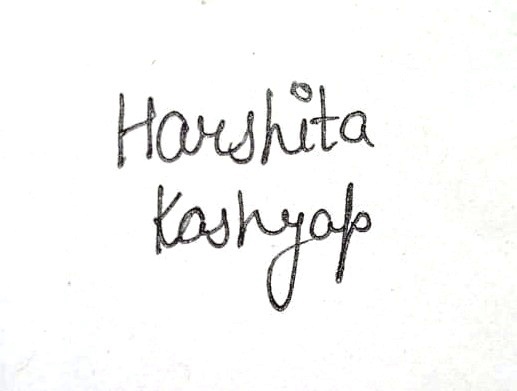 Harshita
Kashyap